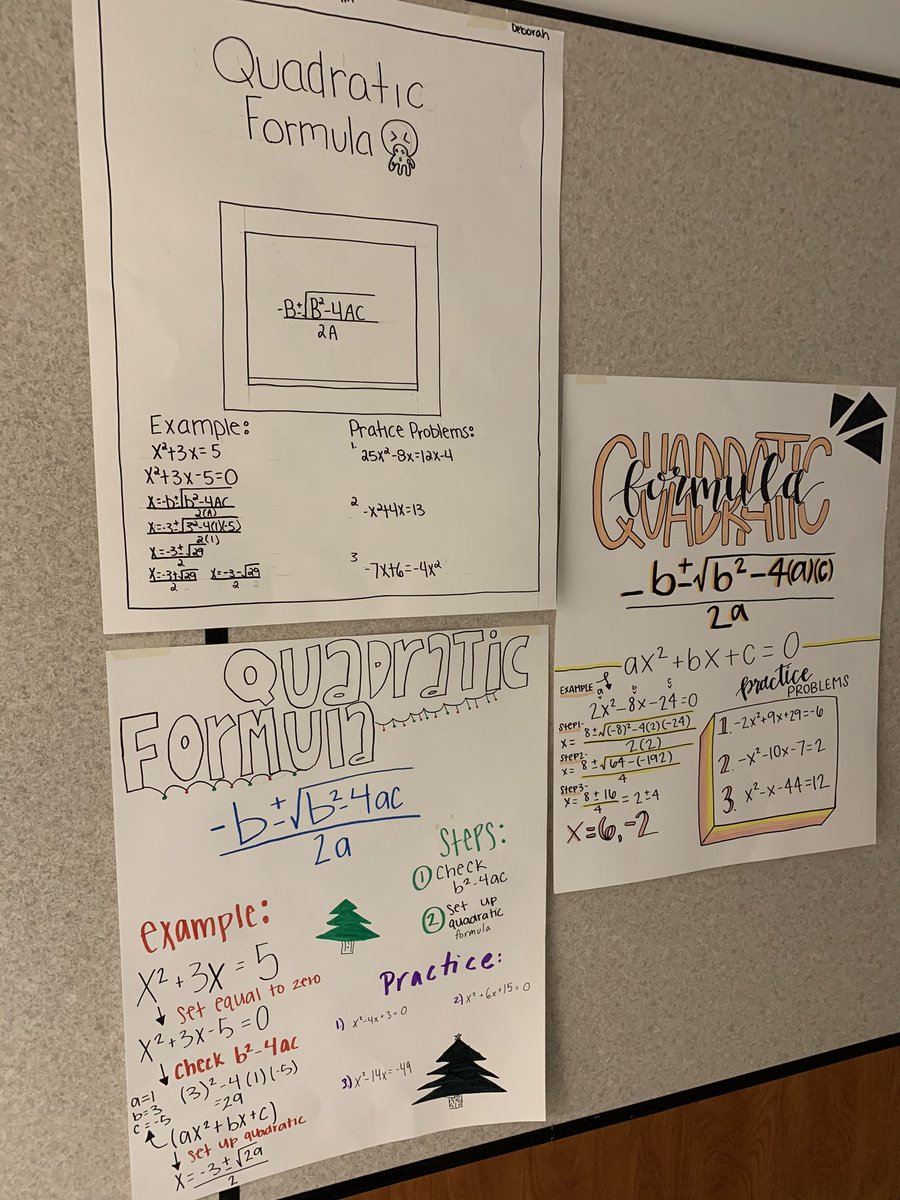 Deborah
Quadratic
Formula
-B±√B²-4AC
2A
Example:
x²+3x=5
x²+3x-5=0
x=-b±√b²-4AC
2(A)
x=-3±√3²-4(1)(-5)
2(1)
x=-3±√29
2
x=-3+√29 x=-3-√29
2 2
Pratice Problems:
1. 25x²-8x=12x-4
2 -x²+4x=13
3 -7x+6=-4x²
QUADRATIC
formula
-b±√b²-4(a)(c)
2a
ax²+bx+c=0
EXAMPLE
a b c
2x²-8x-24=0
Step1-
x= 8±√(-8)²-4(2)(-24)
2(2)
Step2-
x= 8±√64-(-192)
4
Step3-
x= 8±16 = 2±4
4
x=6,-2
practice
PROBLEMS
1. -2x²+9x+29=-6
2. -x²-10x-7=2
3. x²-x-44=12
QUADRATIC
FORMULA
-b±√b²-4ac
2a
Steps:
① Check
b²-4ac
② Set up
quadratic
formula
example:
x²+3x=5
↓ set equal to zero
x²+3x-5=0
↓ Check b²-4ac
a=1
b=3
c=-5
(3)²-4(1)(-5)
=29
(ax²+bx+c)
↓ Set up quadratic
x=-3±√29
2
Practice:
1) x²-4x+3=0
2) x²+6x+15=0
3) x²-14x=-49